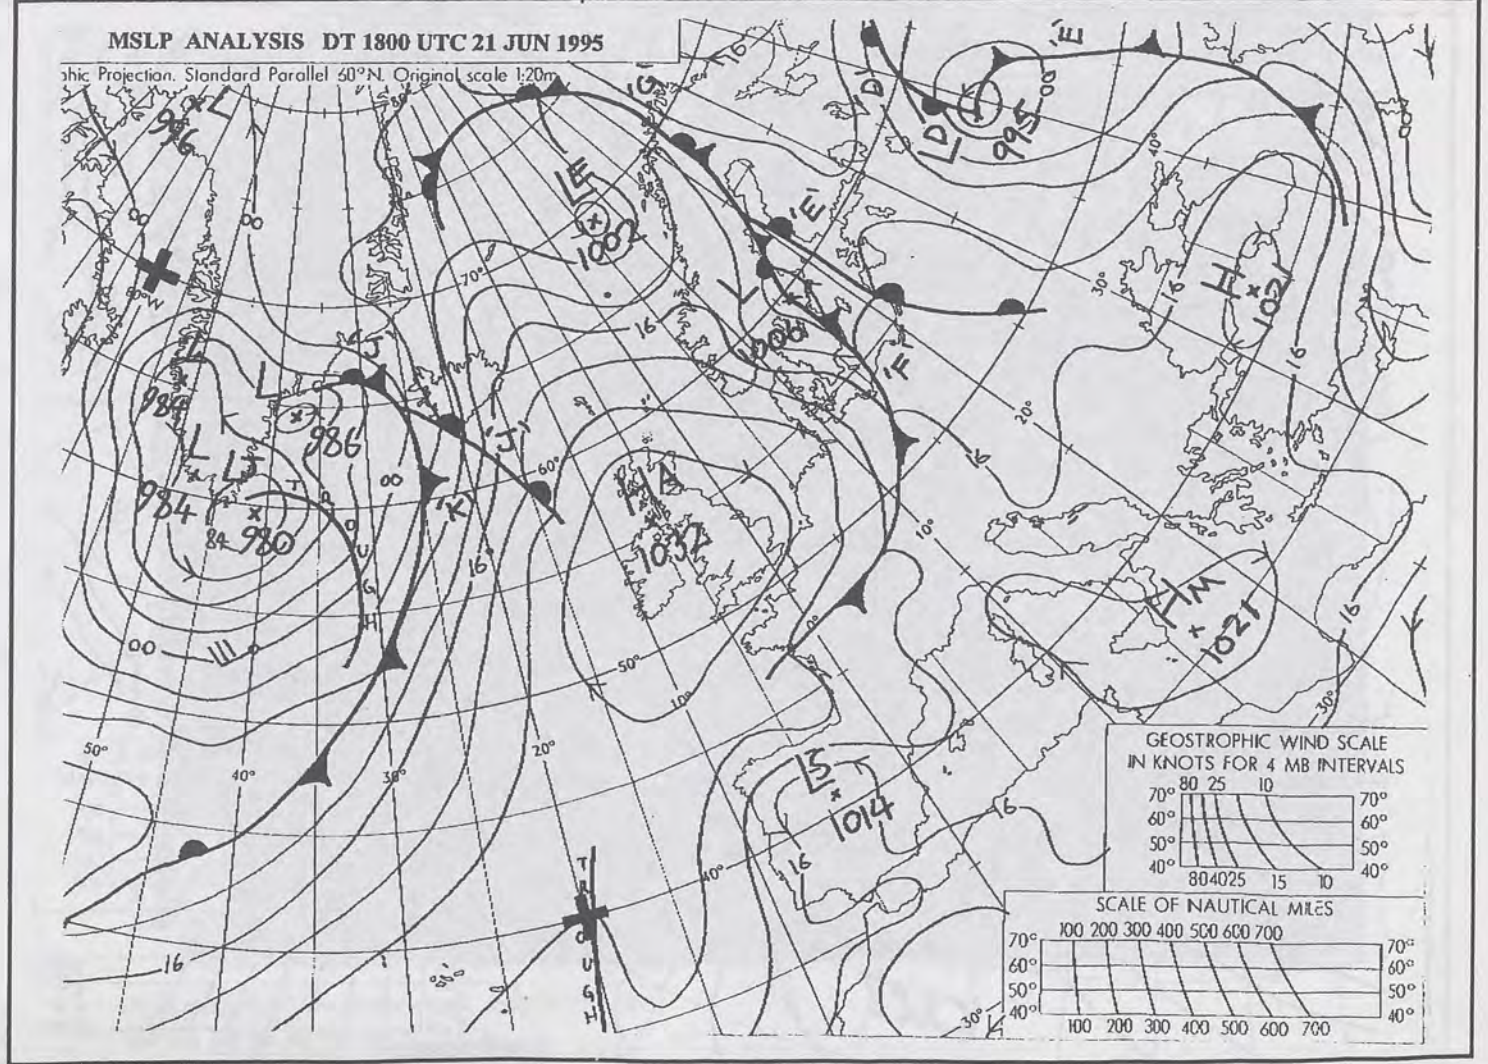 MSLP ANALYSIS DT 1800 UTC 21 JUN 1995
phic Projection. Standard Parallel 60°N. Original scale 1:20m
L
996
'G'
16
'D'
'E'
LD
995
00
40°
LE
1002
'E'
00
00
70°
50°W
30°
16
H
1021
L
1006
'F'
16
16
'J'
L
984
L
986
L
984
LJ
84
980
TROUGH
00
'K'
'J'
60°
16°
HA
1032
20°
16
10°
0°
HM
1021
16
30°
00
50°
10°
50°
40°
30°
20°
L5
1014
16
40°
16
TROUGH
16
30°
GEOSTROPHIC WIND SCALE
IN KNOTS FOR 4 MB INTERVALS
80 25 10
70° 70°
60° 60°
50° 50°
40° 40°
80 40 25 15 10
SCALE OF NAUTICAL MILES
100 200 300 400 500 600 700
70° 70°
60° 60°
50° 50°
40° 40°
100 200 300 400 500 600 700